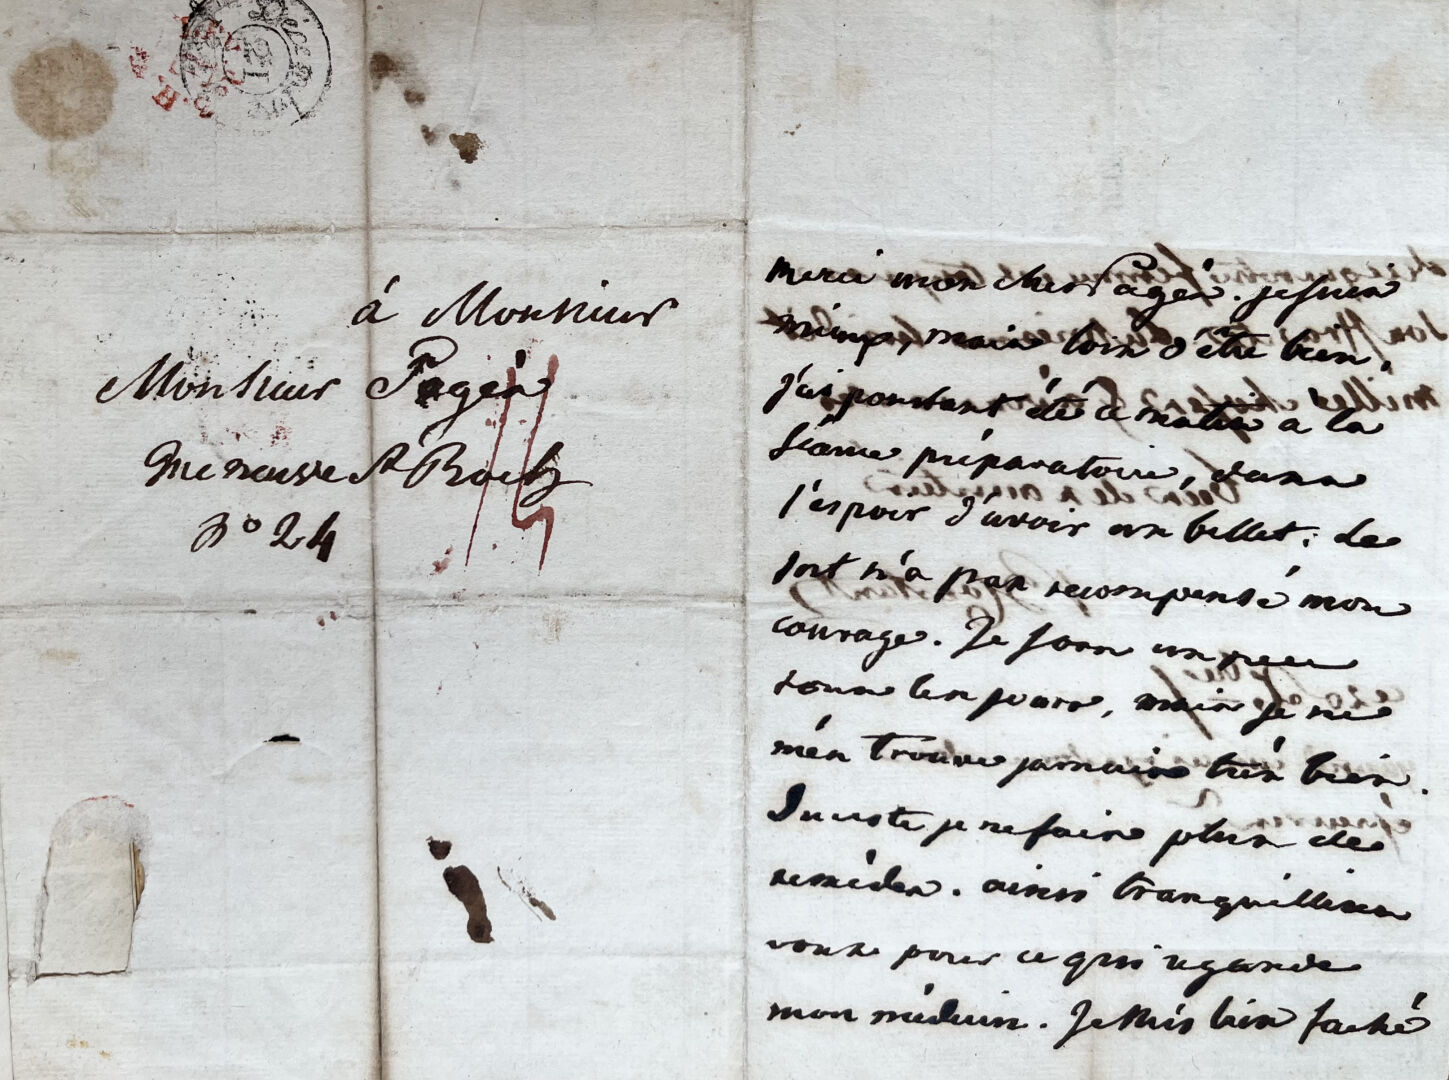 à Monsieur
Monsieur Pagès
rue neuve St Roch
No 24
merci mon cher Pagès. je suis
mieux, mais loin d'être bien.
j'ai pourtant été ce matin à la
séance préparatoire, dans
l'espoir d'avoir un billet. Le
sort n'a pas recompensé mon
courage. Je sors un peu
tous les jours, mais je ne
m'en trouve jamais très bien.
Du reste je ne fais plus de
remèdes. ainsi tranquillisez
vous pour ce qui regarde
mon médecin. Je suis bien faché